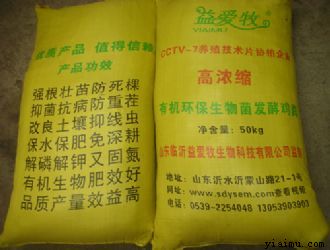 优质产品 值得信赖
产品功效
强根壮苗防死棵
抑菌抗病防重茬
改良土壤抑线虫
保水保肥免深耕
解磷解钾又固氮
有机生物肥效好
品质产量效益高
益爱牧
YIAIMU
CCTV-7养殖技术片协拍企业
高浓缩
有机环保生物菌发酵鸡粪
净含量: 50kg
山东临沂益爱牧生物科技有限公司监制
地址: 山东沂水沂蒙山路21-1号
www.sdysem.com查看视频
电话: 0539-2254048 13053903903
yiaimu.com